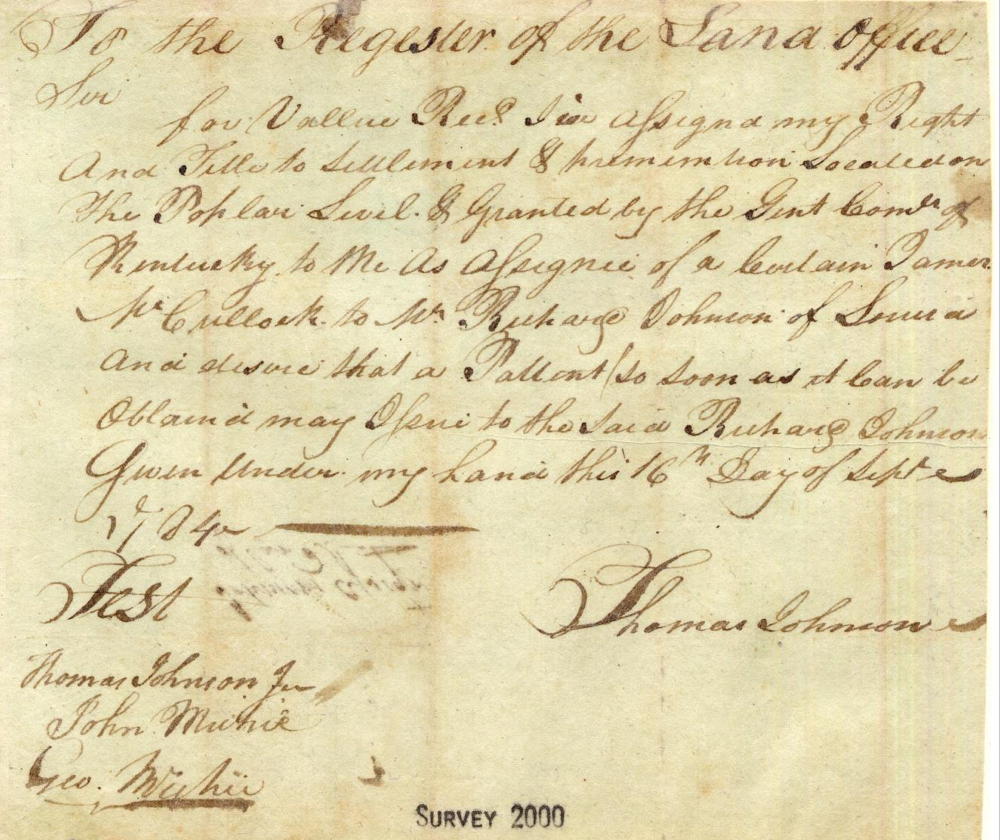 To the Regester of the Land office
Sir
for Vallue Recd. I do assign my Right
And Title to settlement & premention Located on
The Poplar Level & Granted by the Gent Comrs of
Kentucky to Me As assignee of a Certain James
McCullock to Mr Richard Johnson of Louisa
And desire that a Pattent (so soon as it Can be
Obtaind may Issue to the said Richard Johnson
Given Under my hand this 16th Day of Septe
1784
Test
Thomas Johnson
Thomas Johnson Jr
John Michie
Geo. Michie
SURVEY 2000